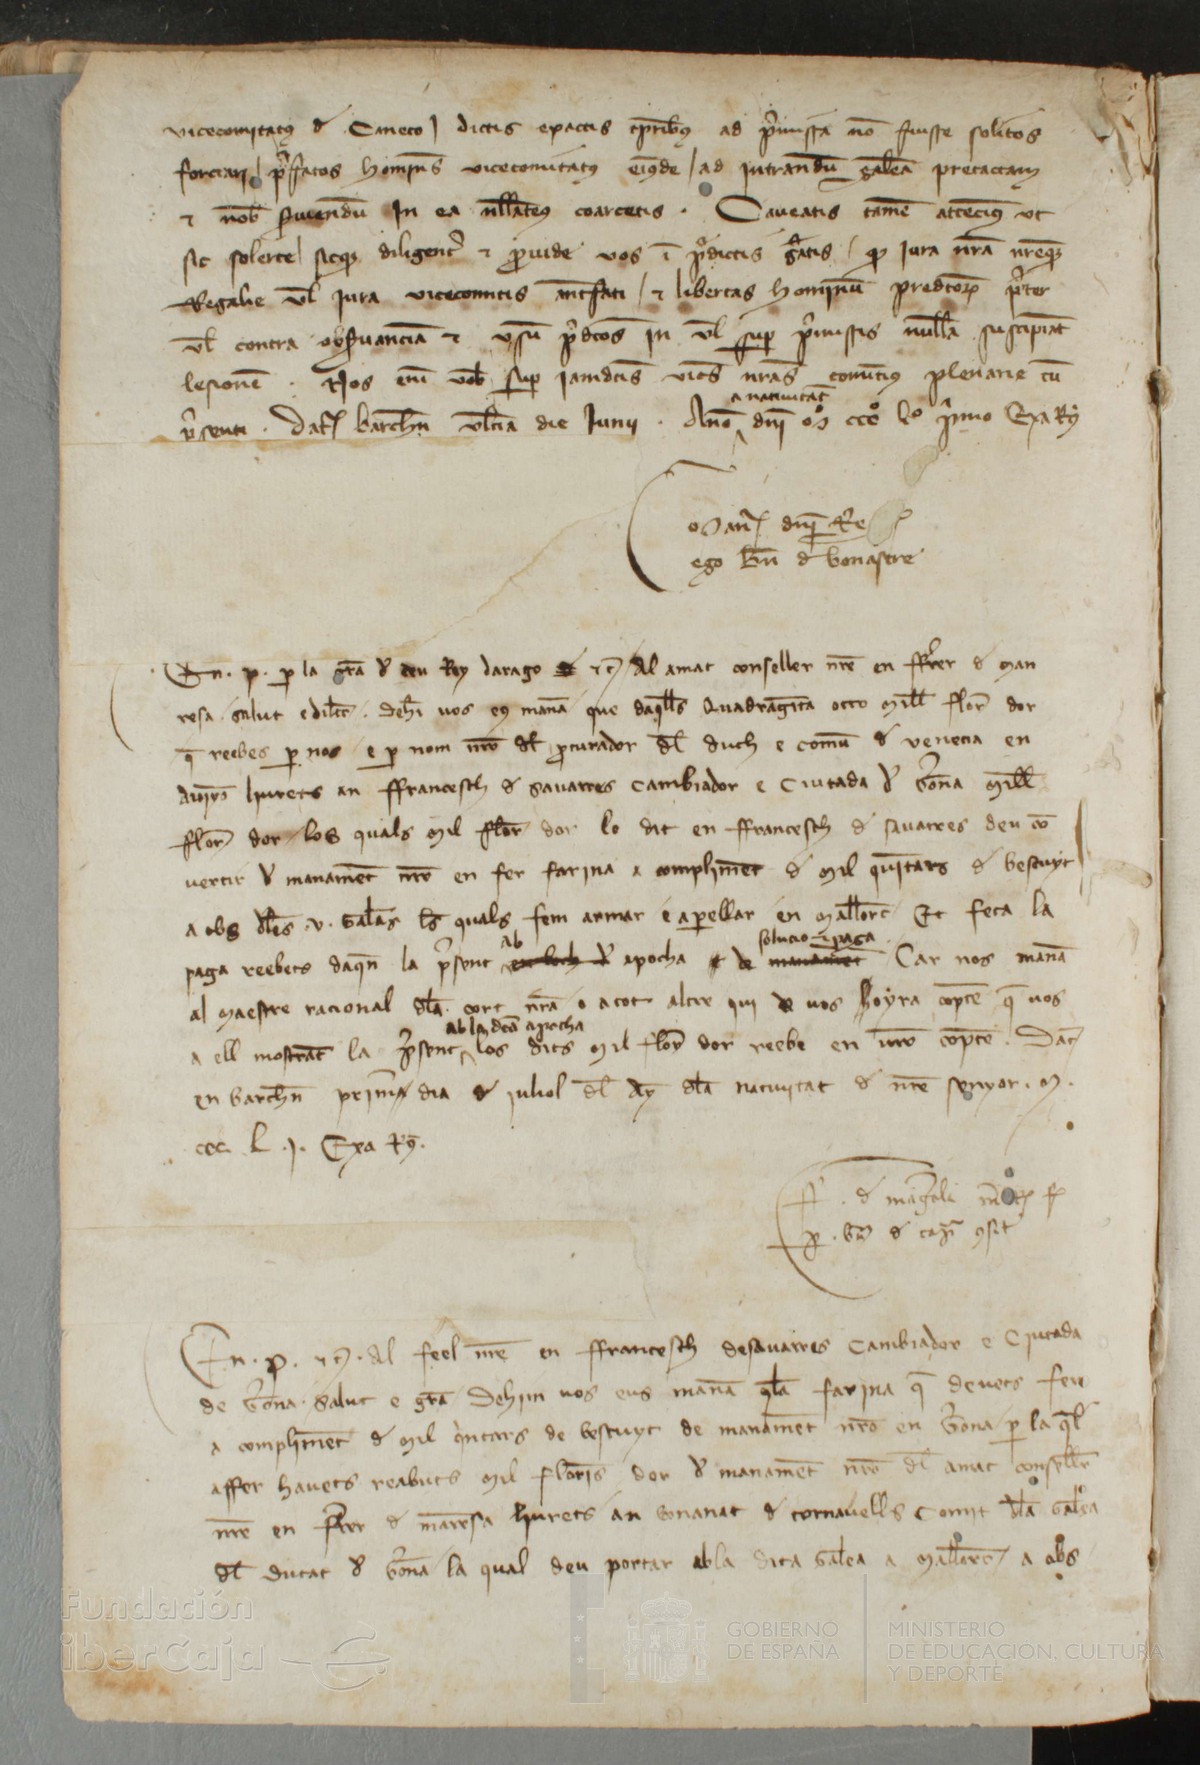 vicecomitatus de Caneto / dictis exactis temporibus ad premissa non fuisse solitos
forciari / prefatos homines vicecomitatus eiusde / ad intrandum galeam pretactam
et nob serviendum in ea nullatenus coarcetis . Caveatis tamen attencius ut
sic solerte / sicque diligenter et provide vos in predictis geratis / quod iura nostra nostreque
Regalie vel iura vicecomitis antefati / et libertas hominum predictorum preter
vel contra observanciam et usum predictos in vel super premissis nullam suscipiant
lesionem . Nos enim vobis super iamdictis vices nostras comittimus plenarie cum
presenti . Dat Barchn ultima die Junii . Anno a nativitate dni Mº CCCº Lº primo Exa Rº
Man dni Re
ego de Bonastre
En . P . per la gra de deu Rey darago etc Al amat conseller nre en fferrer de Man
resa salut e dilec . Dehim vos eus manam que daquells quadraginta octo mill flor dor
que reebes per nos e per nom nro del procurador del duch e comu de Venecia en
liurets an ffrancesch de Savarres cambiador e ciutada de Gerona mill
flor dor los quals mil flor dor lo dit en ffrancesch de Savarres deu con
vertir de manament nro en fer farina a compliment de mil quintars de bescuyt
a obs dles .v. galeas les quals fem armar e aperellar en Mallorc Et feta la
paga reebets daqn la present ab apocha de solucio e paga . Car nos manam
al maestre racional dla cort nra o a tot altre qui de vos hoyra compte que vos
a ell mostrant la present ab la dita apocha los dits mil flor dor reebe en vro compte . Dat
en Barchn prima dia de juliol del any dla nativitat de nre senyor . M .
CCC . L . J . Exa Rº .
ff . de Magrola
p . de
En . P . etc . Al feel nre en ffrancesch de Savarres cambiador e ciutada
de Gerona salut e gra Dehim vos eus manam que la farina que devets fer
a compliment de mil quintars de bescuyt de manament nro en Gerona per la qual
affer havets reebuts mil florins dor de manament nro del amat conseller
nre en fferrer de Manresa liurets an Bonanat de Cornavells comit dla galea
del ducat de Gerona la qual deu portar ab la dita galea a Mallorc / a obs
Fundación
iberCaja
GOBIERNO
DE ESPAÑA
MINISTERIO
DE EDUCACIÓN, CULTURA
Y DEPORTE